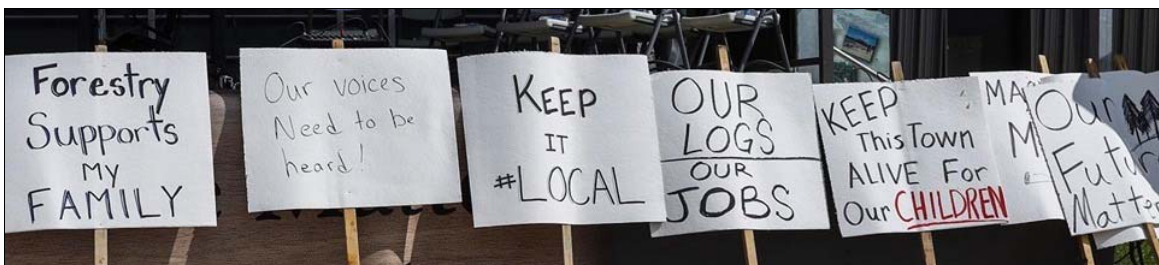 Forestry
Supports
MY
FAMILY
Our voices
Need to be
heard!
KEEP
IT
#LOCAL
OUR
LOGS
OUR
JOBS
KEEP
This Town
ALIVE For
Our CHILDREN
Our
Matt